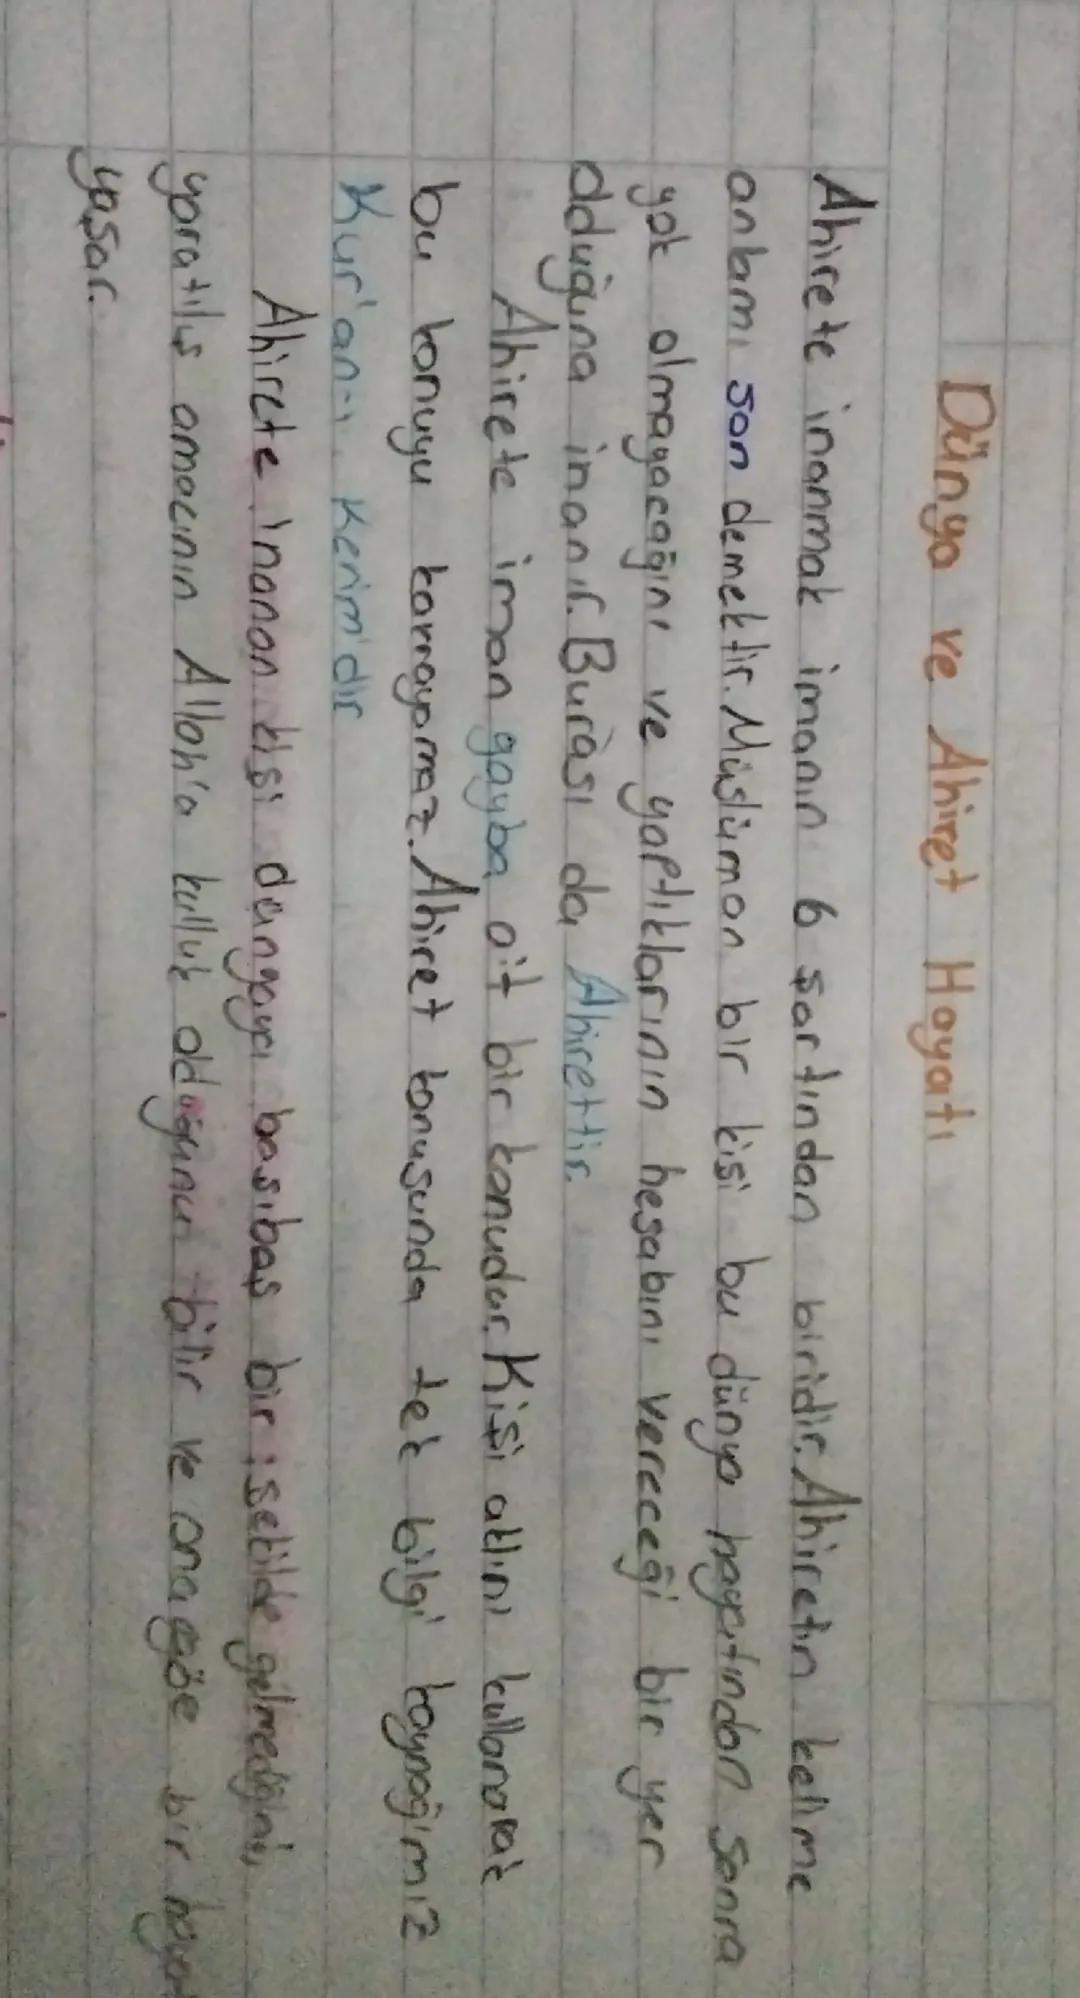 Dünya ve Ahiret Hayatı
Ahirete inanmak imanın 6 şartından biridir. Ahiretin kelime
anlamı son demektir. Müslüman bir kişi bu dünya hayatından sonra
yok olmayacağını ve yaptıklarının hesabını vereceği bir yer
olduğuna inanır. Burası da Ahirettir.
Ahirete iman gayba ait bir konudur. Kişi aklını kullanarak
bu konuyu kavrayamaz. Ahiret konusunda tek bilgi kaynağımız
Kur'an-ı Kerim'dir
Ahirete inanan kişi dünyaya başıbaş bir şekilde gelmediğini,
yaratılış amacının Allah'a kulluk olduğunu bilir ve ona göre bir hayat
yaşar.